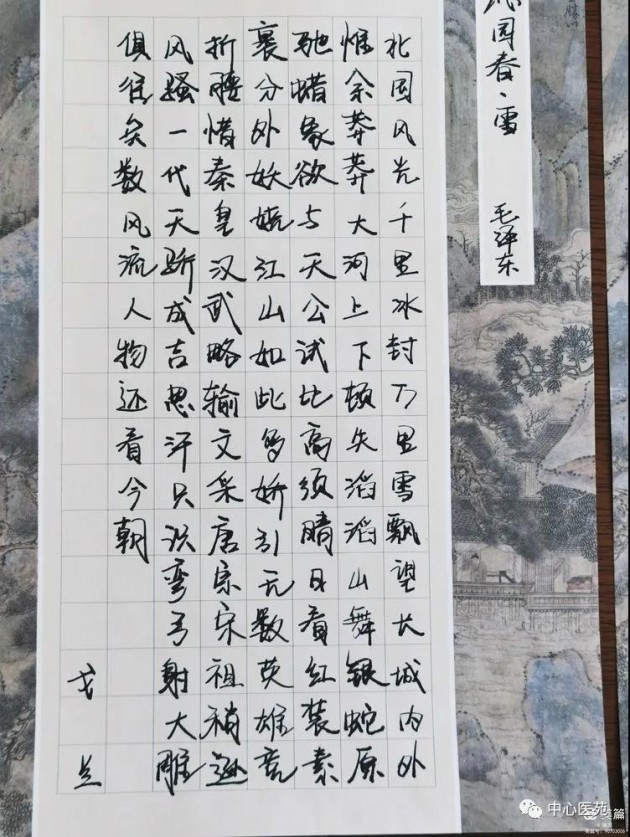 沁园春·雪
毛泽东
北国风光千里冰封万里雪飘望长城内外
惟余莽莽大河上下顿失滔滔山舞银蛇原
驰蜡象欲与天公试比高须晴日看红装素
裹分外妖娆江山如此多娇引无数英雄竞
折腰惜秦皇汉武略输文采唐宗宋祖稍逊
风骚一代天骄成吉思汗只识弯弓射大雕
俱往矣数风流人物还看今朝
戈兰
中心医苑
美篇